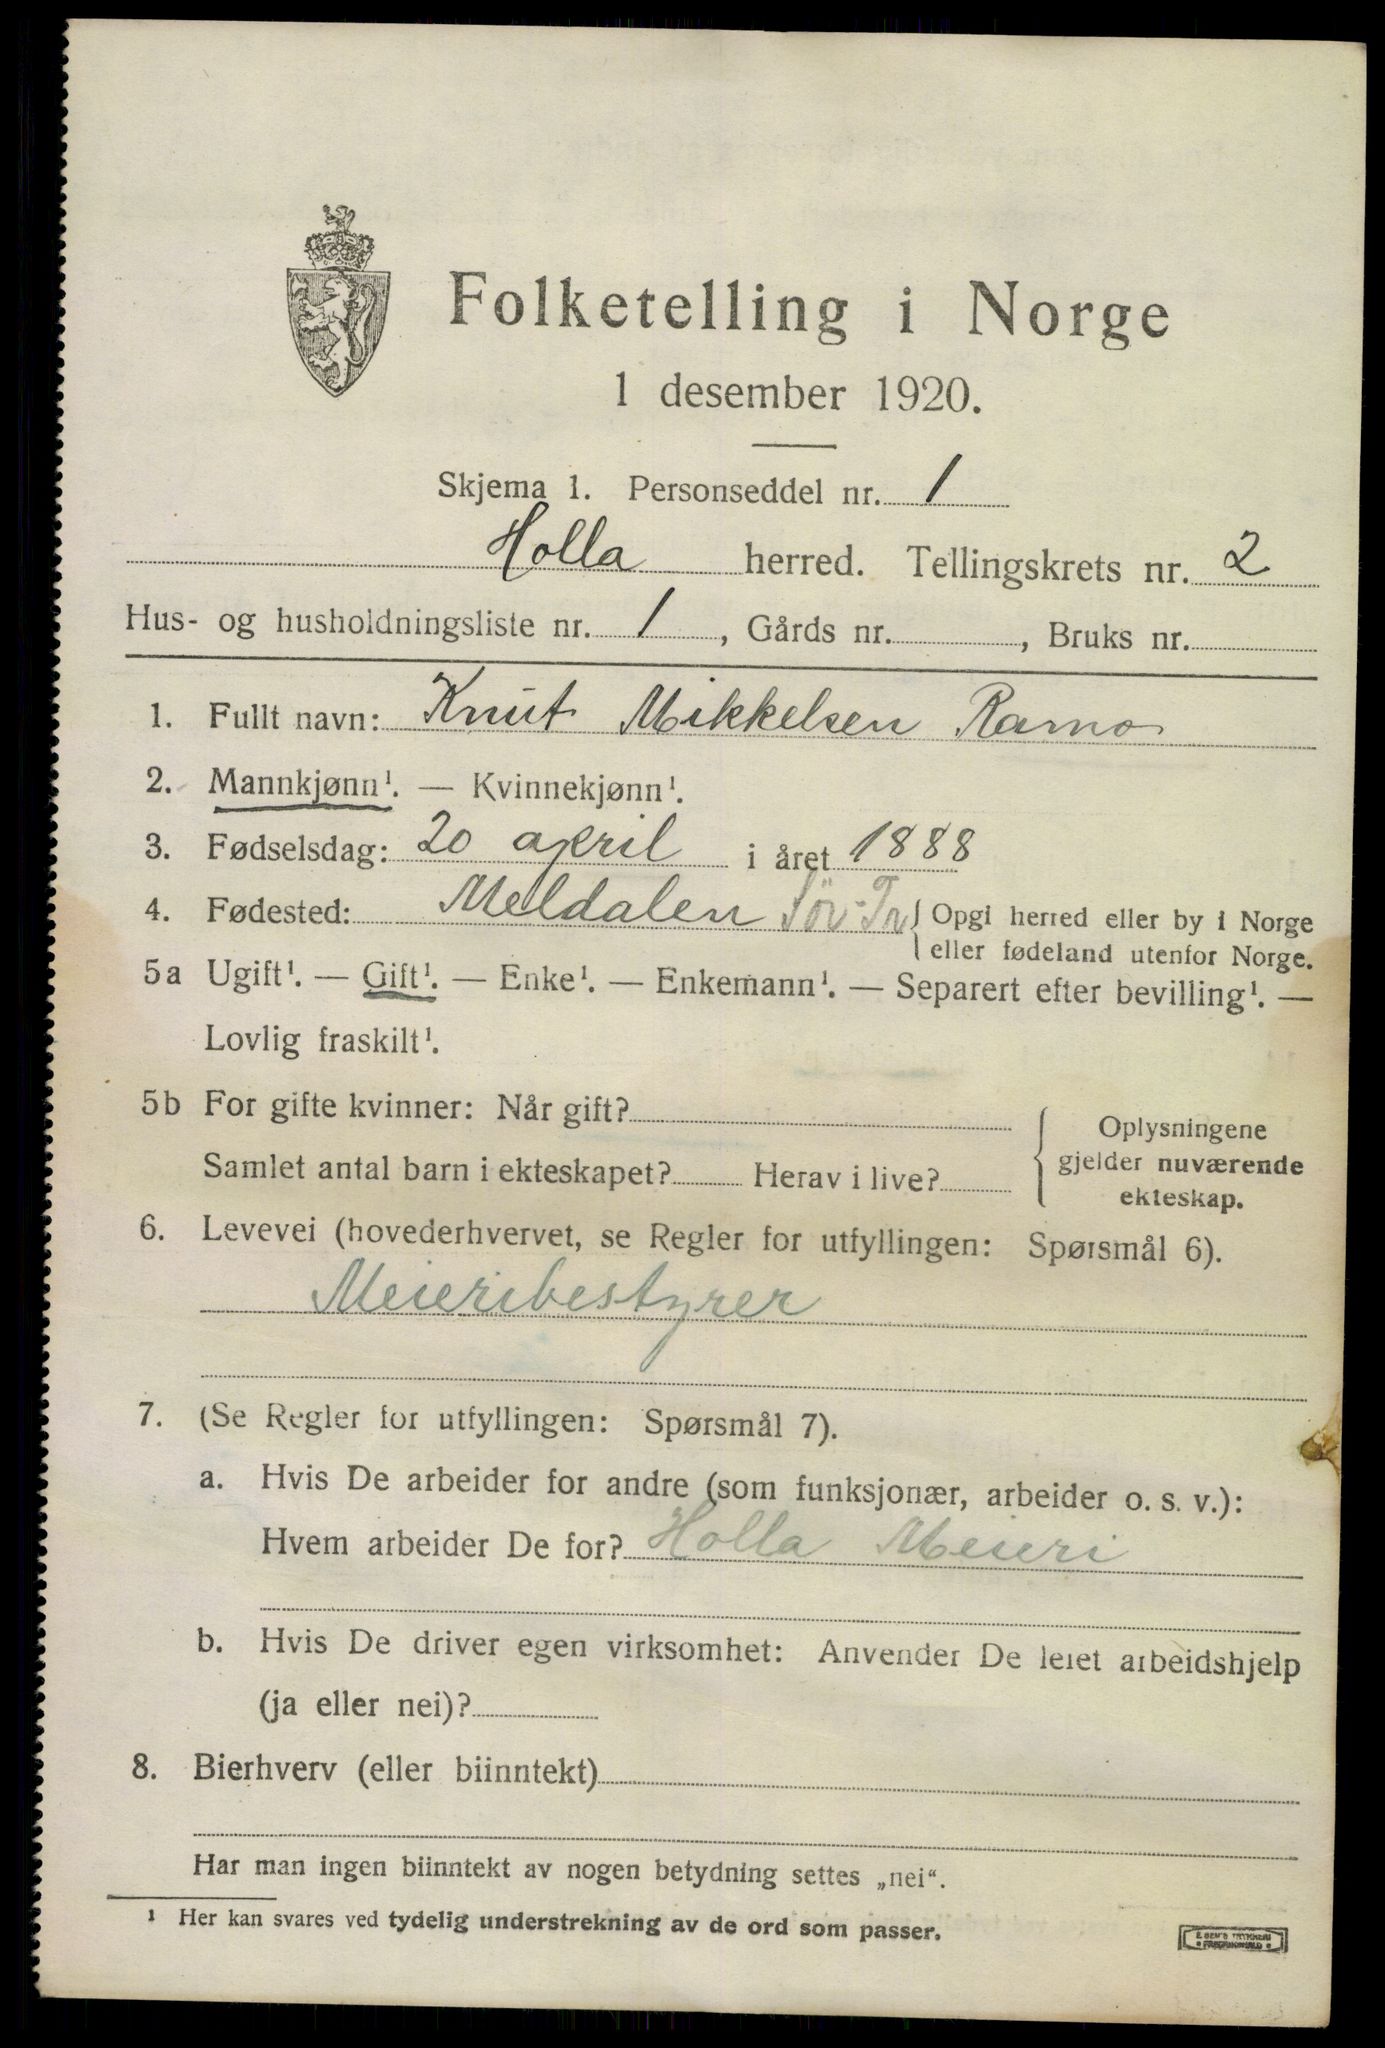 Folketelling i Norge
1 desember 1920.
Skjema 1. Personseddel nr. 1
Holla herred. Tellingskrets nr. 2
Hus- og husholdningsliste nr. 1, Gårds nr. , Bruks nr.
1. Fullt navn: Knut Mikkelsen Ramo
2. Mannkjønn¹. — Kvinnekjønn¹.
3. Fødselsdag: 20 april i året 1888
4. Fødested: Meldalen Sör-Tr { Opgi herred eller by i Norge
eller fødeland utenfor Norge.
5a Ugift¹. — Gift¹. — Enke¹. — Enkemann¹. — Separert efter bevilling¹. —
Lovlig fraskilt¹.
5b For gifte kvinner: Når gift?
Samlet antal barn i ekteskapet? Herav i live?
{ Oplysningene
gjelder nuværende
ekteskap.
6. Levevei (hovederhvervet, se Regler for utfyllingen: Spørsmål 6).
Meieribestyrer
7. (Se Regler for utfyllingen: Spørsmål 7).
a. Hvis De arbeider for andre (som funksjonær, arbeider o. s. v.):
Hvem arbeider De for? Holla Meieri
b. Hvis De driver egen virksomhet: Anvender De leiet arbeidshjelp
(ja eller nei)?
8. Bierhverv (eller biinntekt)
Har man ingen biinntekt av nogen betydning settes „nei“.
¹ Her kan svares ved tydelig understrekning av de ord som passer.